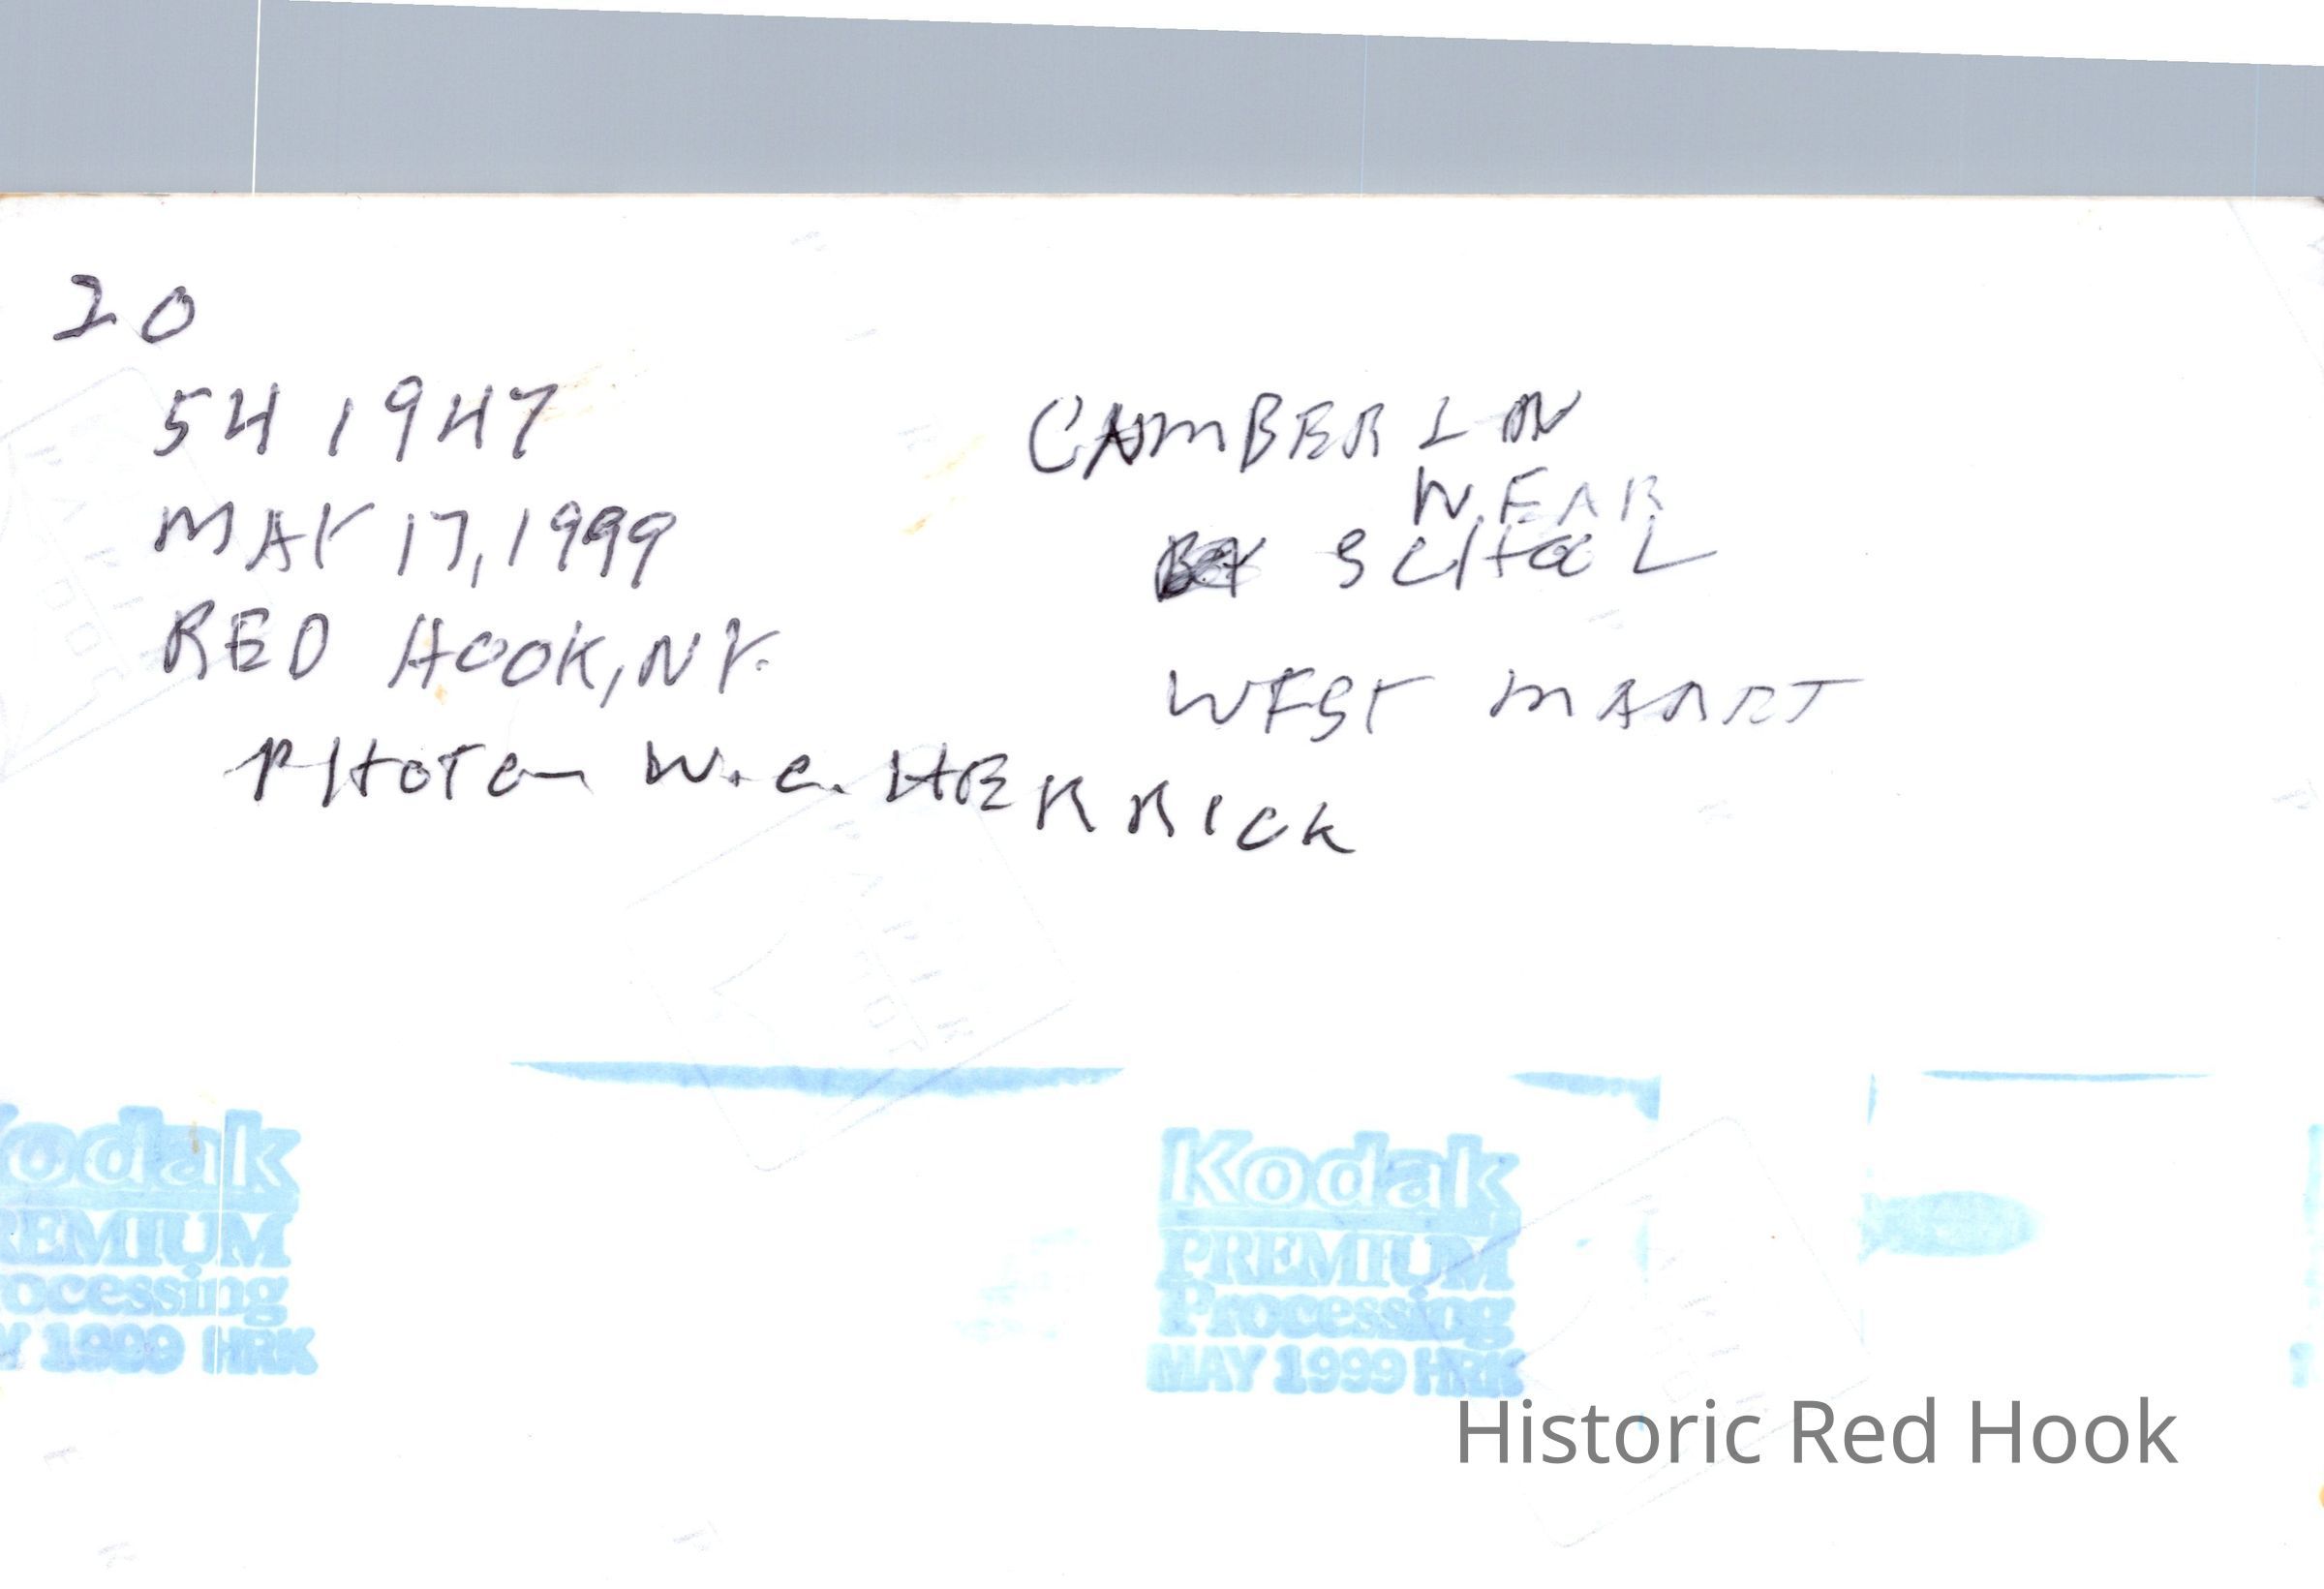 20
54 1947
MAY 17, 1999
RED HOOK, NY.
PHOTO — W. C. HERRICK
CAMBERLIN
WEAR
SCHOOL
WEST MARRT
Kodak
PREMIUM
Processing
MAY 1999 HRK
odak
REMIUM
ocessing
Y 1999 HRK
Historic Red Hook